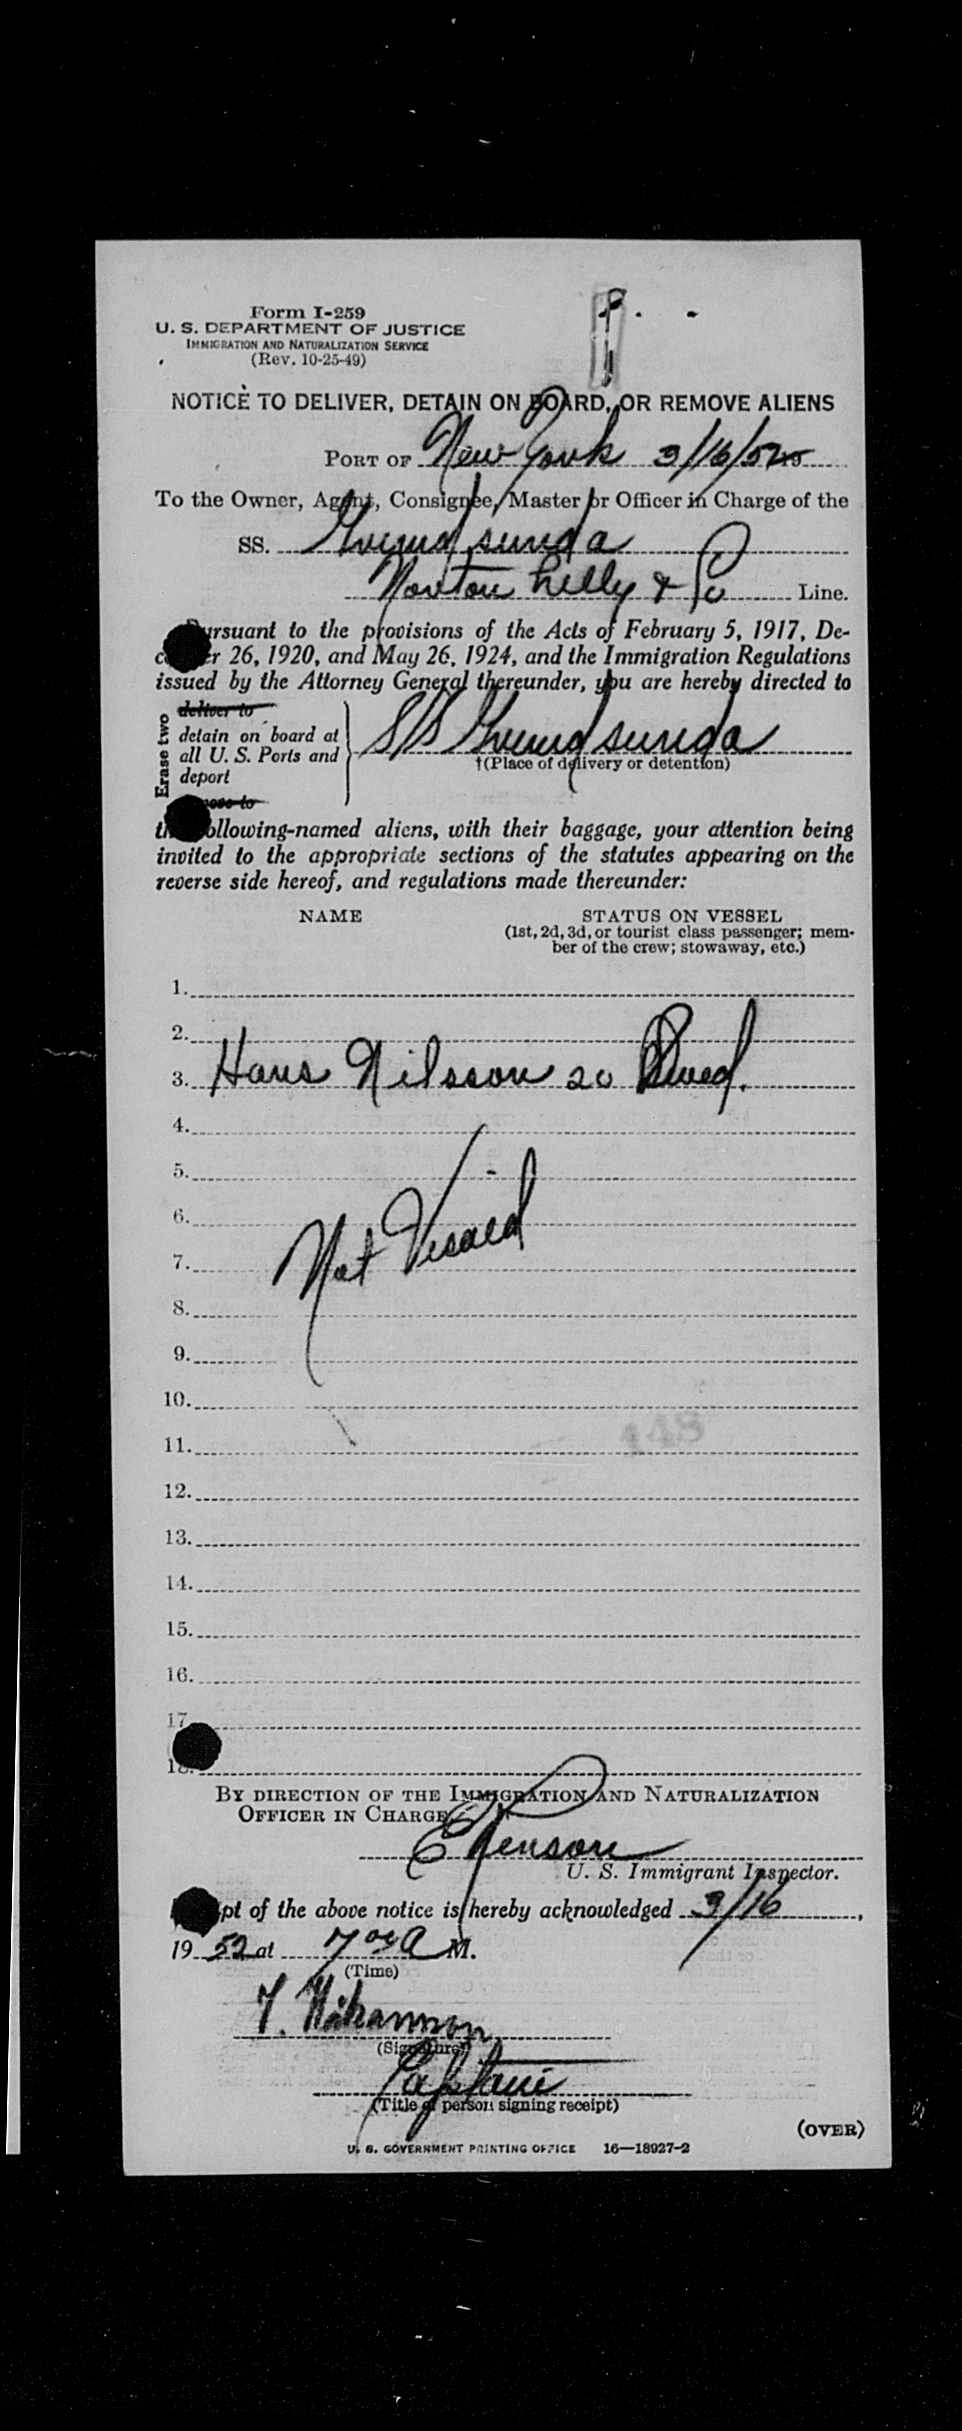 Form I-259
U. S. DEPARTMENT OF JUSTICE
IMMIGRATION AND NATURALIZATION SERVICE
(Rev. 10-25-49)
NOTICE TO DELIVER, DETAIN ON BOARD, OR REMOVE ALIENS
PORT OF New York 3/16/52
To the Owner, Agent, Consignee, Master or Officer in Charge of the
SS.
Norton Lilly & Co Line.
Pursuant to the provisions of the Acts of February 5, 1917, De-
r 26, 1920, and May 26, 1924, and the Immigration Regulations
issued by the Attorney General thereunder, you are hereby directed to
Erase two
deliver to
detain on board at
all U. S. Ports and
deport
SS
†(Place of delivery or detention)
to
the following-named aliens, with their baggage, your attention being
invited to the appropriate sections of the statutes appearing on the
reverse side hereof, and regulations made thereunder:
NAME STATUS ON VESSEL
(1st, 2d, 3d, or tourist class passenger; mem-
ber of the crew; stowaway, etc.)
1.
2.
3. Hans Nilsson 20 Swed.
4.
5.
6.
Not Visaed
7.
8.
9.
10.
11. 148
12.
13.
14.
15.
16.
17
18.
BY DIRECTION OF THE IMMIGRATION AND NATURALIZATION
OFFICER IN CHARGE
U. S. Immigrant Inspector.
pt of the above notice is hereby acknowledged 3/16,
19 52 at 7 00 A M.
(Time)
(Signature)
Captain
(Title of person signing receipt)
(OVER)
U. S. GOVERNMENT PRINTING OFFICE 16—18927-2